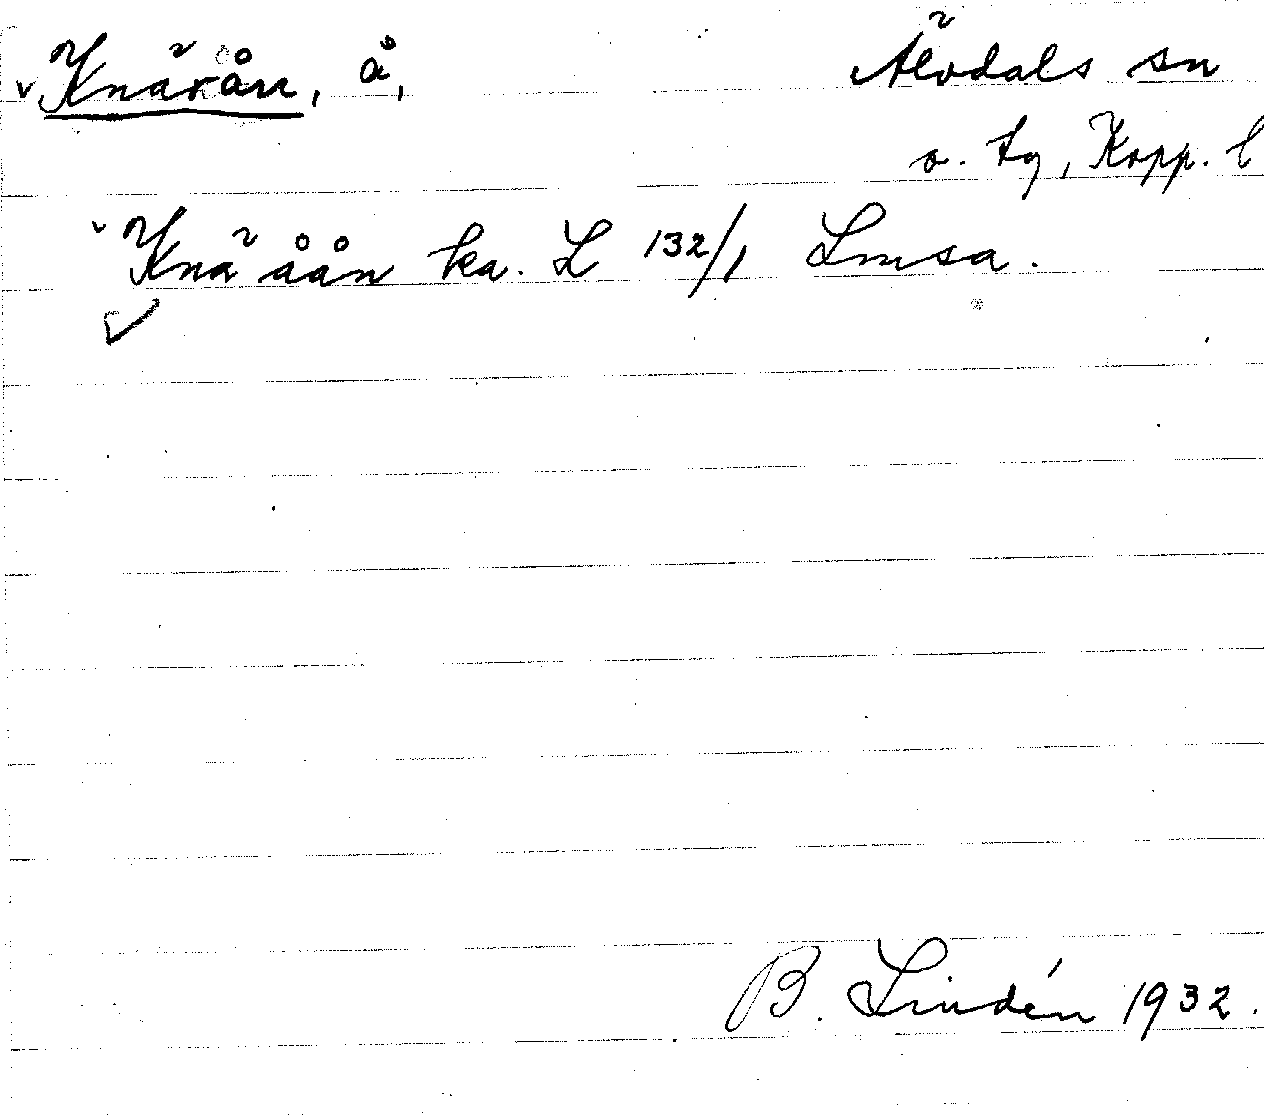 Knärån, å, Älvdals sn
o. tg, Kopp. l
Knä åån ka. L 132/1 Lmsa.
B. Lindén 1932.